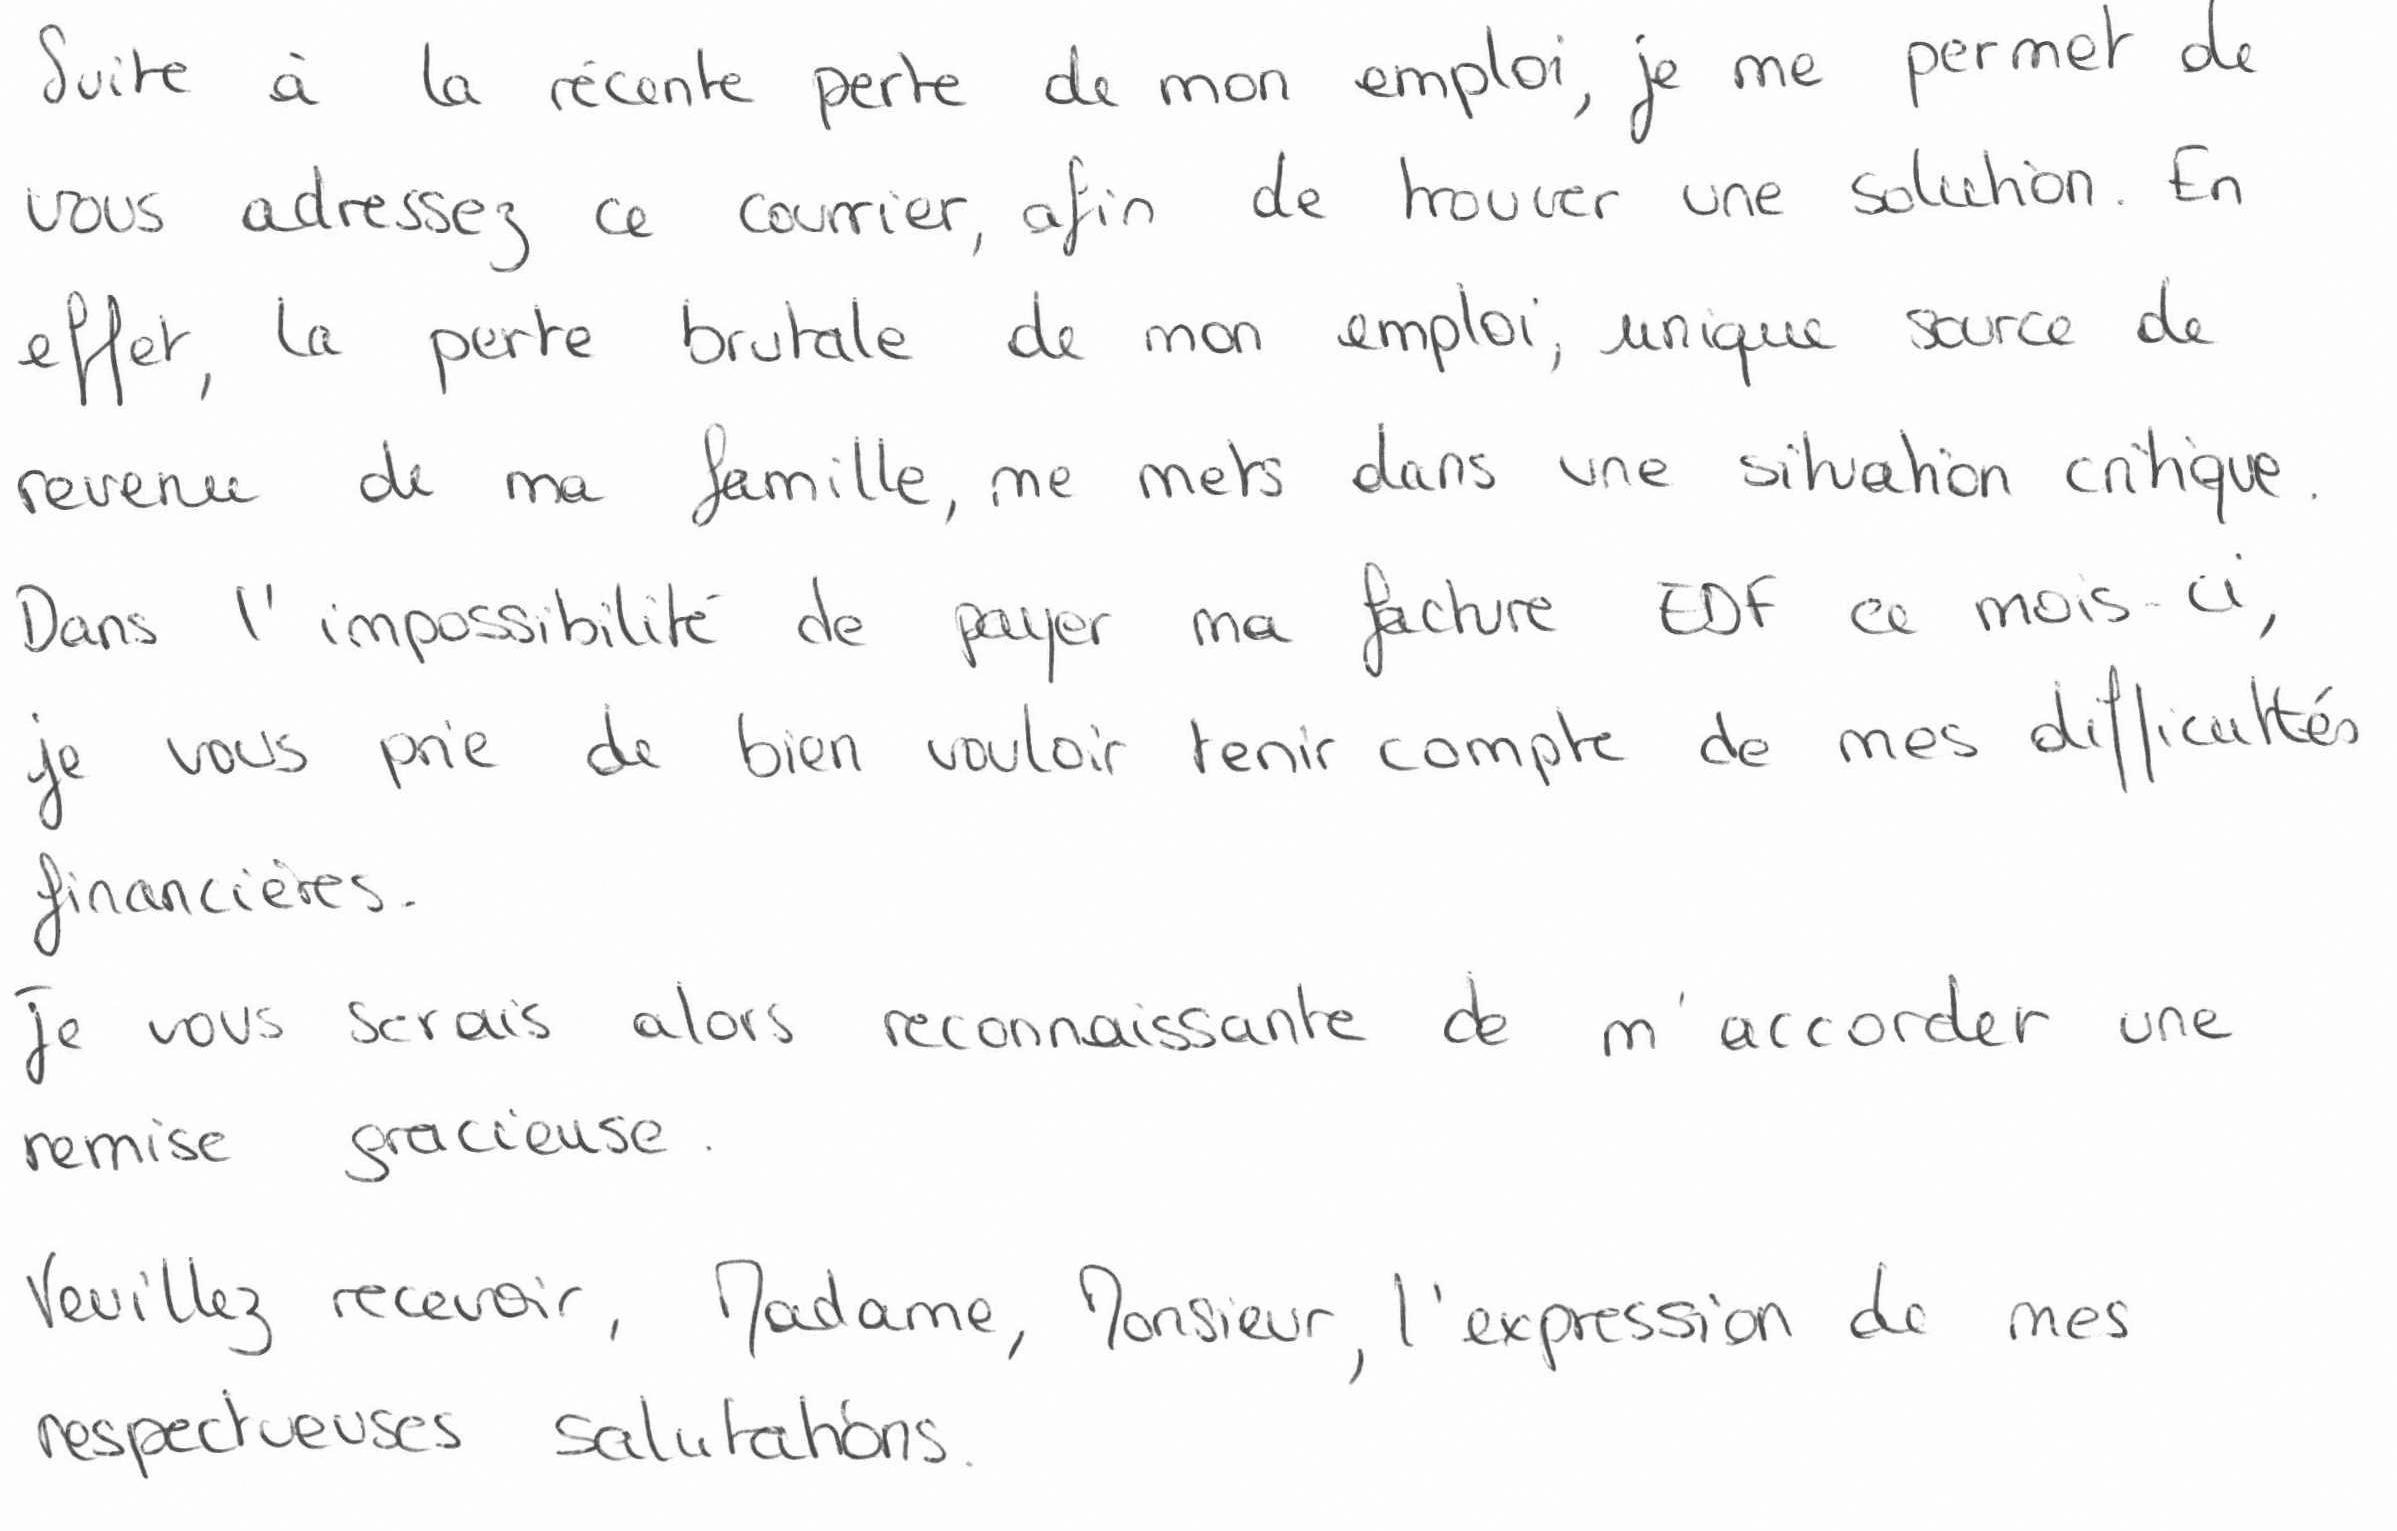 Suite à la récente perte de mon emploi, je me permet de
vous adressez ce courrier, afin de trouver une solution. En
effet, la perte brutale de mon emploi, unique source de
revenu de ma famille, me mets dans une situation critique.
Dans l'impossibilité de payer ma facture EDF ce mois-ci,
je vous prie de bien vouloir tenir compte de mes difficultés
financières.
Je vous serais alors reconnaissante de m'accorder une
remise gracieuse.
Veuillez recevoir, Madame, Monsieur, l'expression de mes
respectueuses salutations.